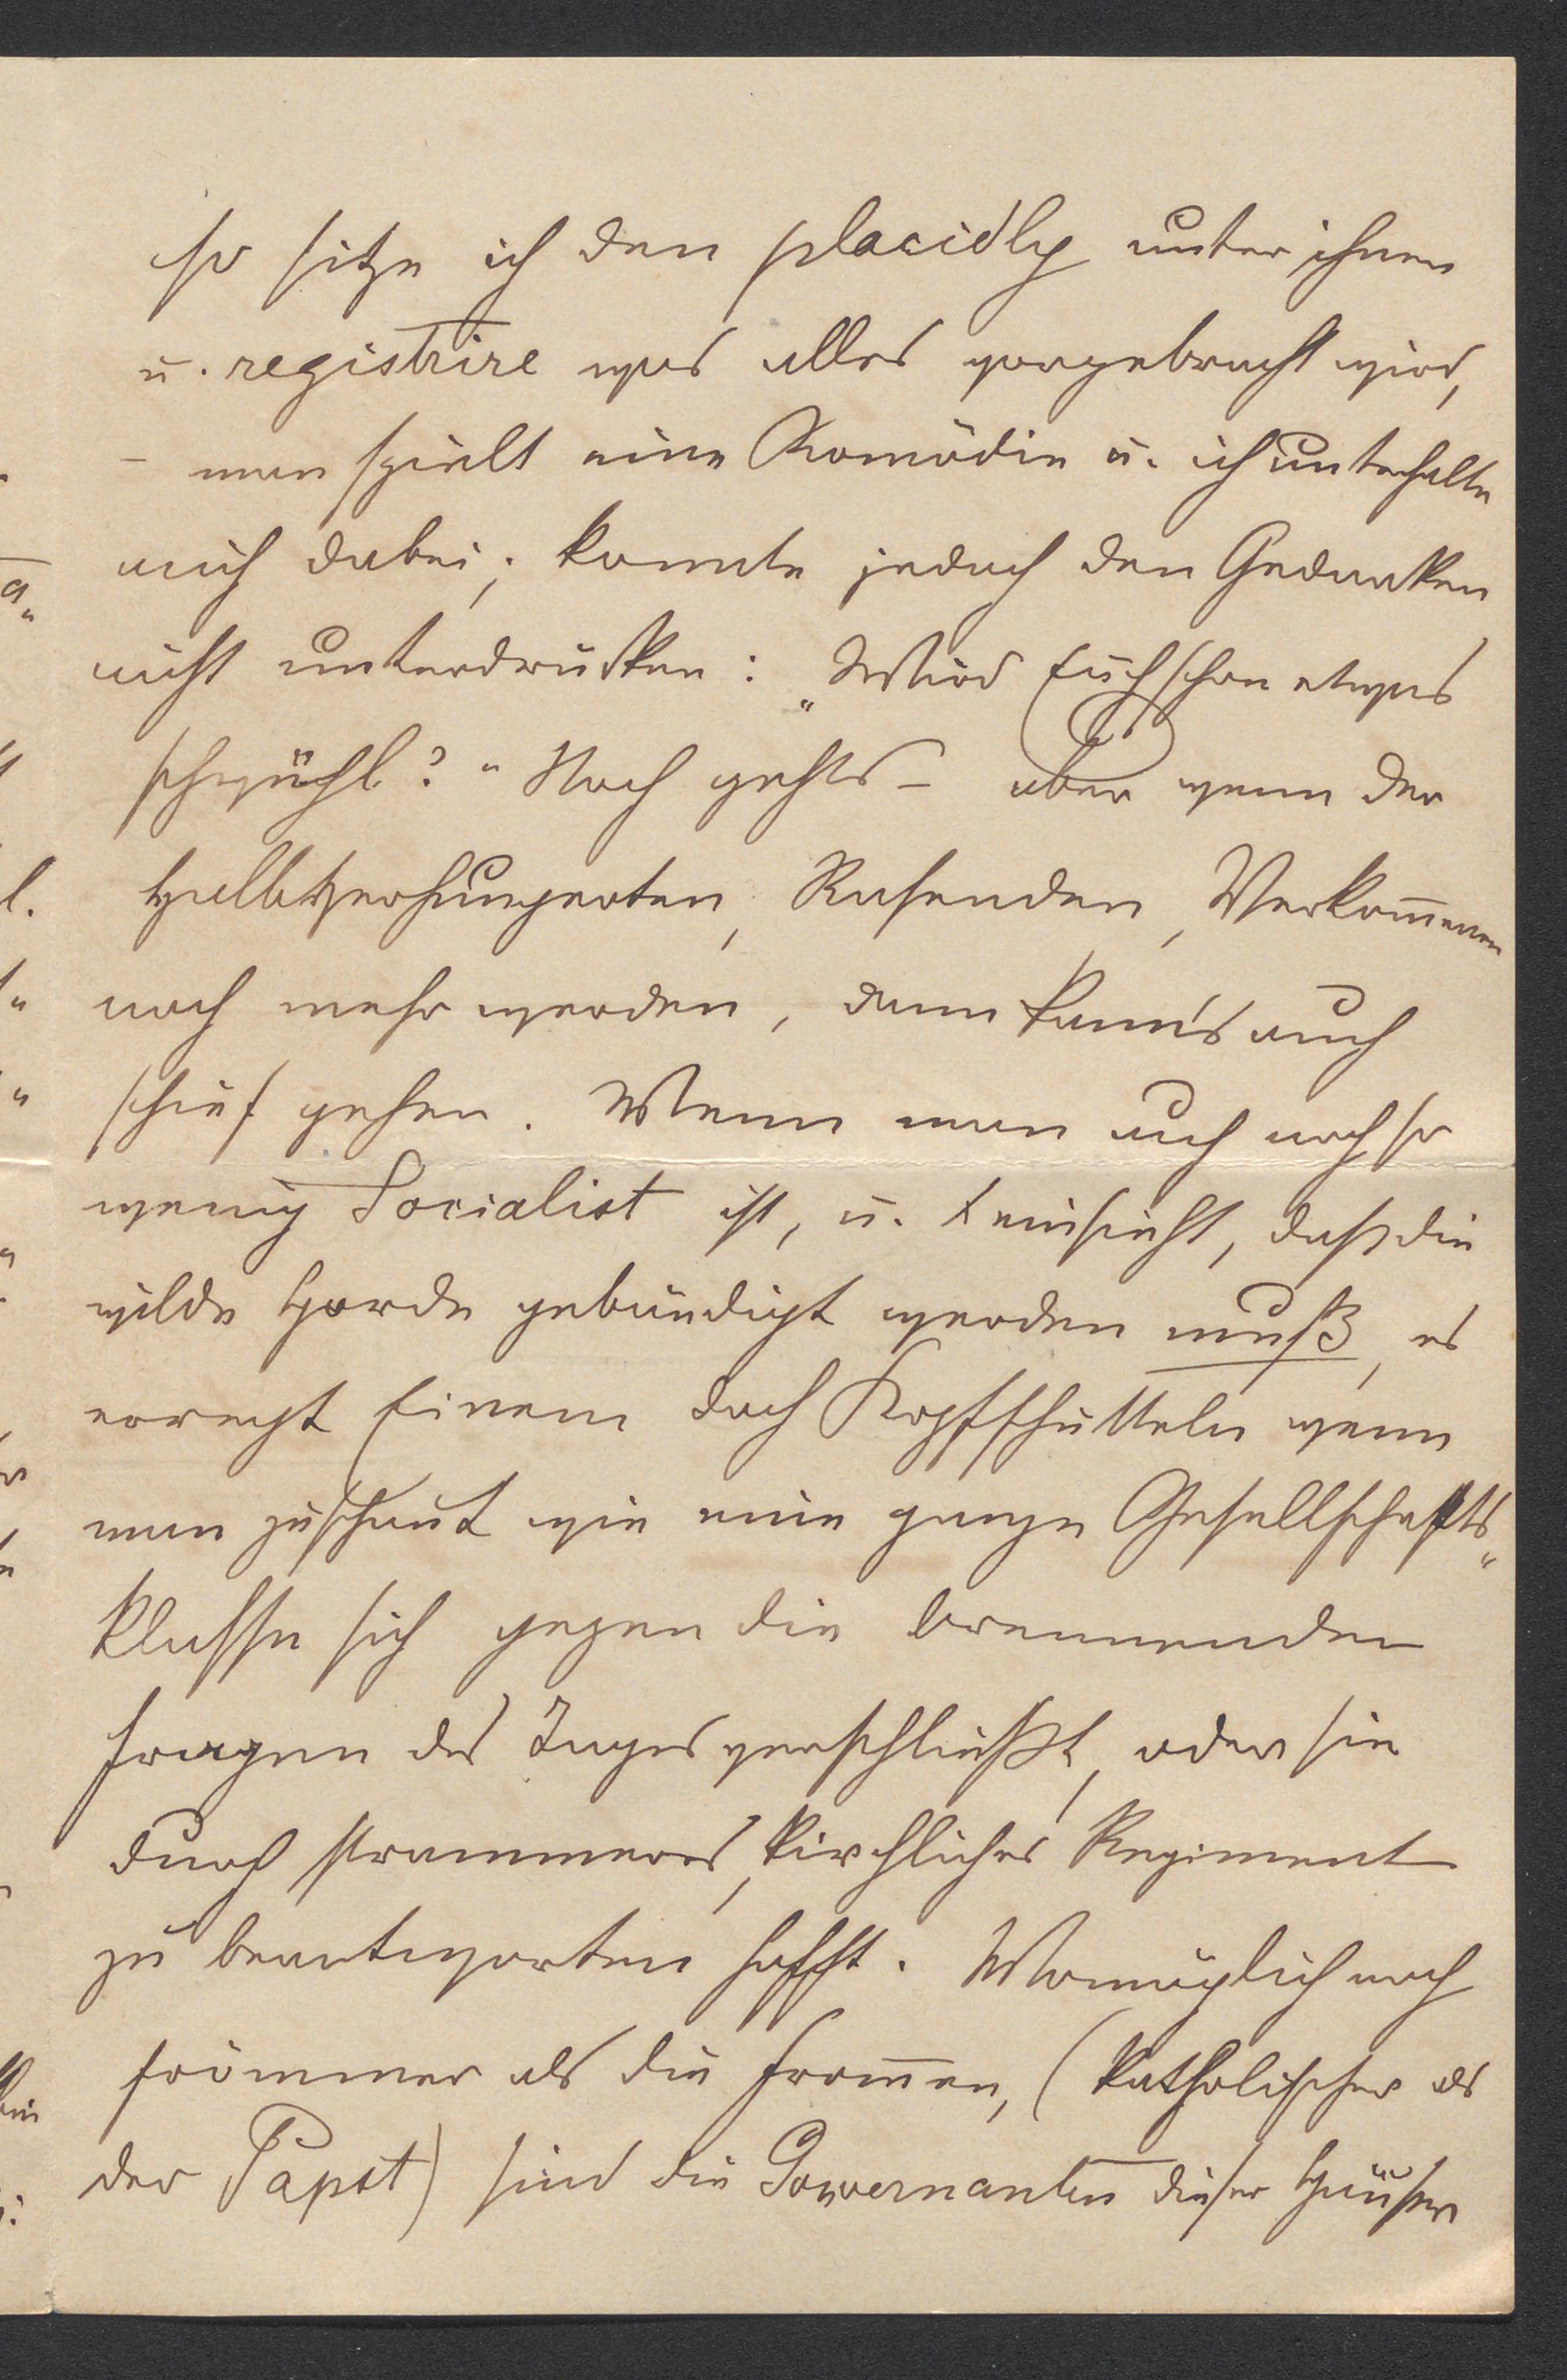 so sitze ich den placidly unter ihnen
u. registrire was alles vorgebracht wird,
– man spielt eine Komödie u. ich unterhalte
mich dabei; konnte jedoch den Gedanken
nicht unterdrücken: „Wird Euch schon etwas
schwühl?“ Noch gehts – aber wenn der
Halbverhungerten, Rasenden, Verkom̅enen
noch mehr werden, dann kann's auch
schief gehen. Wenn man auch noch so
wenig Socialist ist, u. einsieht, daß die
wilde Horde gebändigt werden muß, es
erregt Einem doch Kopfschütteln wenn
man zuschaut wie eine ganze Gesellschafts„
klasse sich gegen die brennenden
Fragen des Tages verschließt, oder sie
durch strammeres, kirchliches Regiment
zu beantworten hofft. Womöglich noch
frömmer als die From̅en, (katholischer als
der Papst) sind die Gouvernanten dieser Häuser